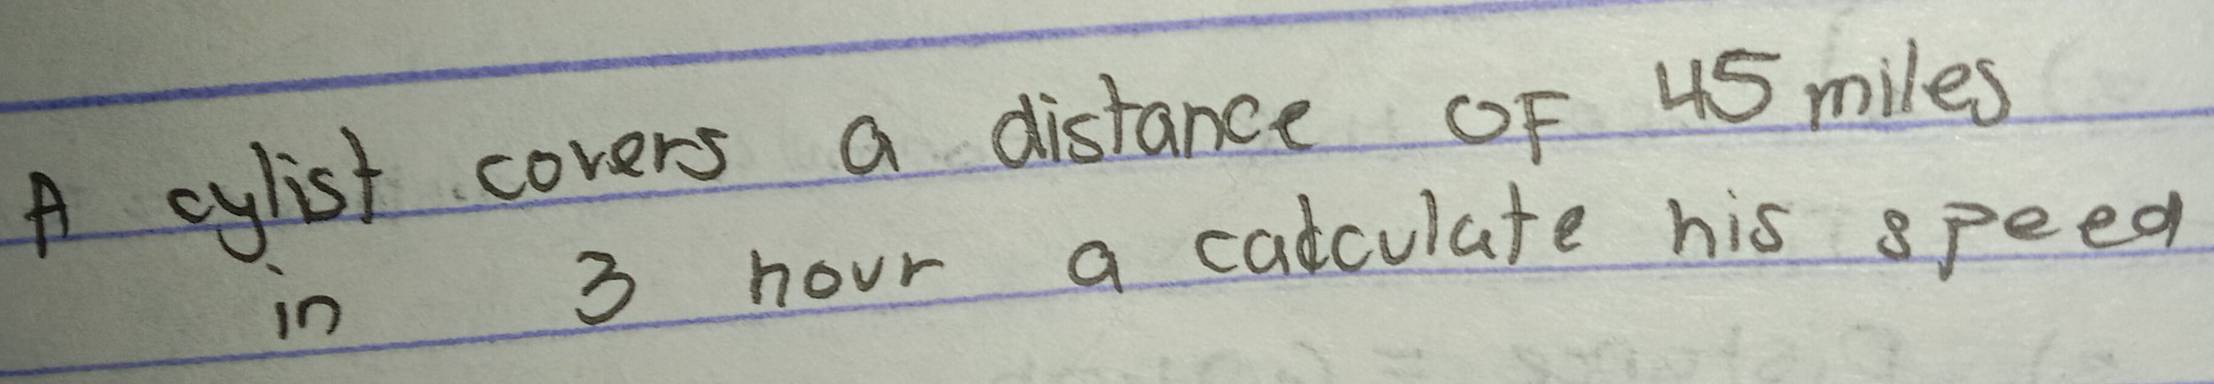 A cylist covers a distance OF 45 miles
in 3 hour a catculate his speed